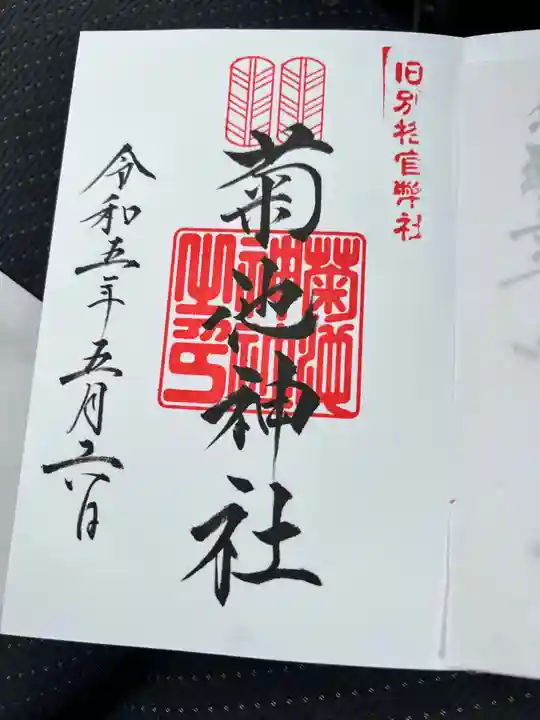 旧別格官幣社
菊池神社
菊池
神社
之印
令和五年五月六日